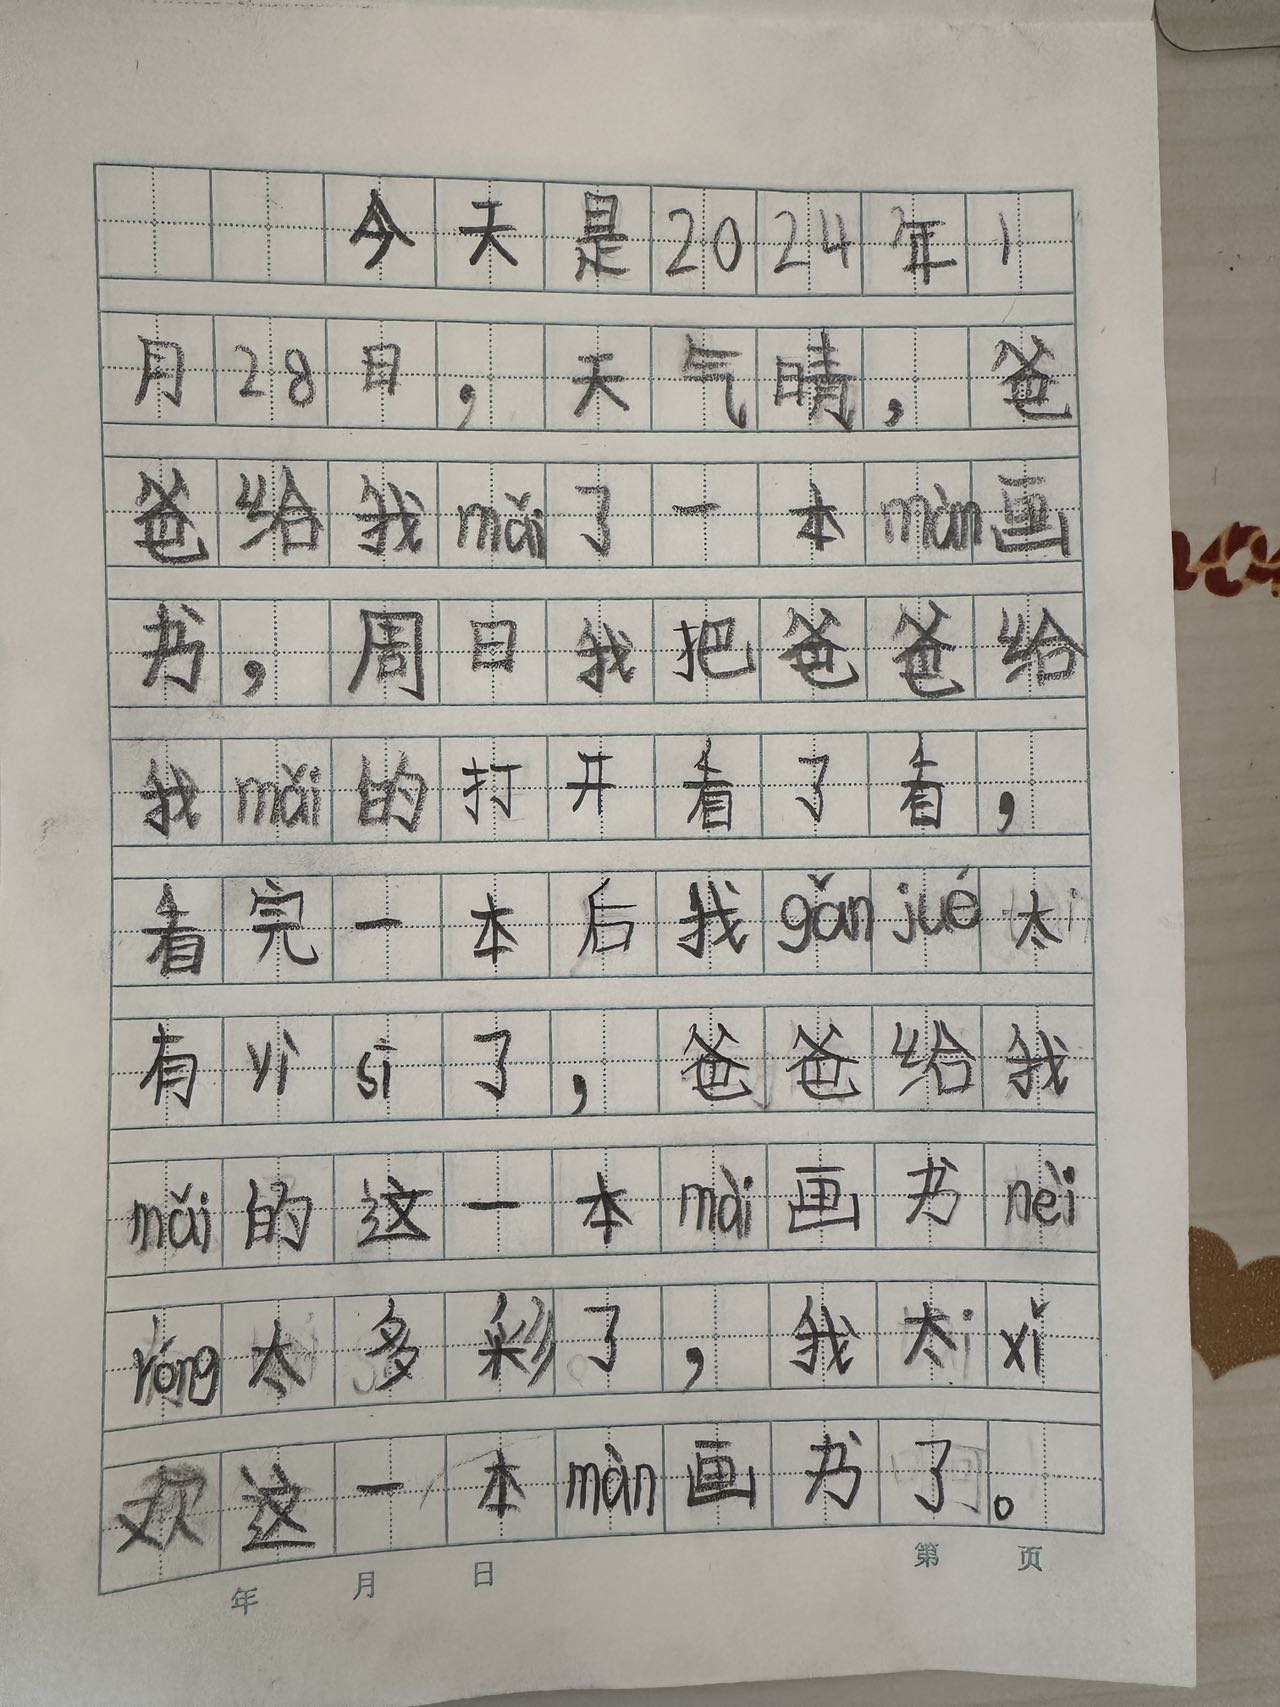 今天是2024年1
月28日，天气晴，爸
爸给我mǎi了一本màn画
书，周日我把爸爸给
我mǎi的打开看了看，
看完一本后我gǎn jué太
有yì sī了，爸爸给我
mǎi的这一本mài画书nèi
róng太多彩了，我太xǐ
欢这一本màn画书了。
年 月 日 第 页